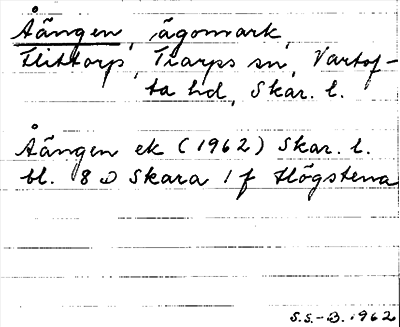 Åängen, ägomark,
Flittorp, Tiarps sn, Vartof-
ta hd, Skar. l.
Åängen ek (1962) Skar. l.
bl. 8 D Skara 1 f Högstena
S.S.-B. 1962